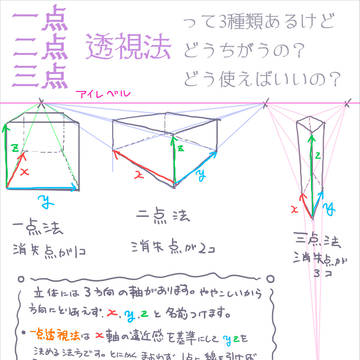 一点
二点 透視法
三点
って3種類あるけど
どうちがうの？
どう使えばいいの？
アイレベル
z
x
y
z
x
y
z
x
y
一点法
消失点が1コ
二点法
消失点が2コ
三点法
消失点が
3コ
立体には3方向の軸があります。ややこしいから
方向にとりあえず、x,y,zと名前つけます。
・一点透視法はx軸の遠近感を基準にしてyzを
決める法うです。とにかく